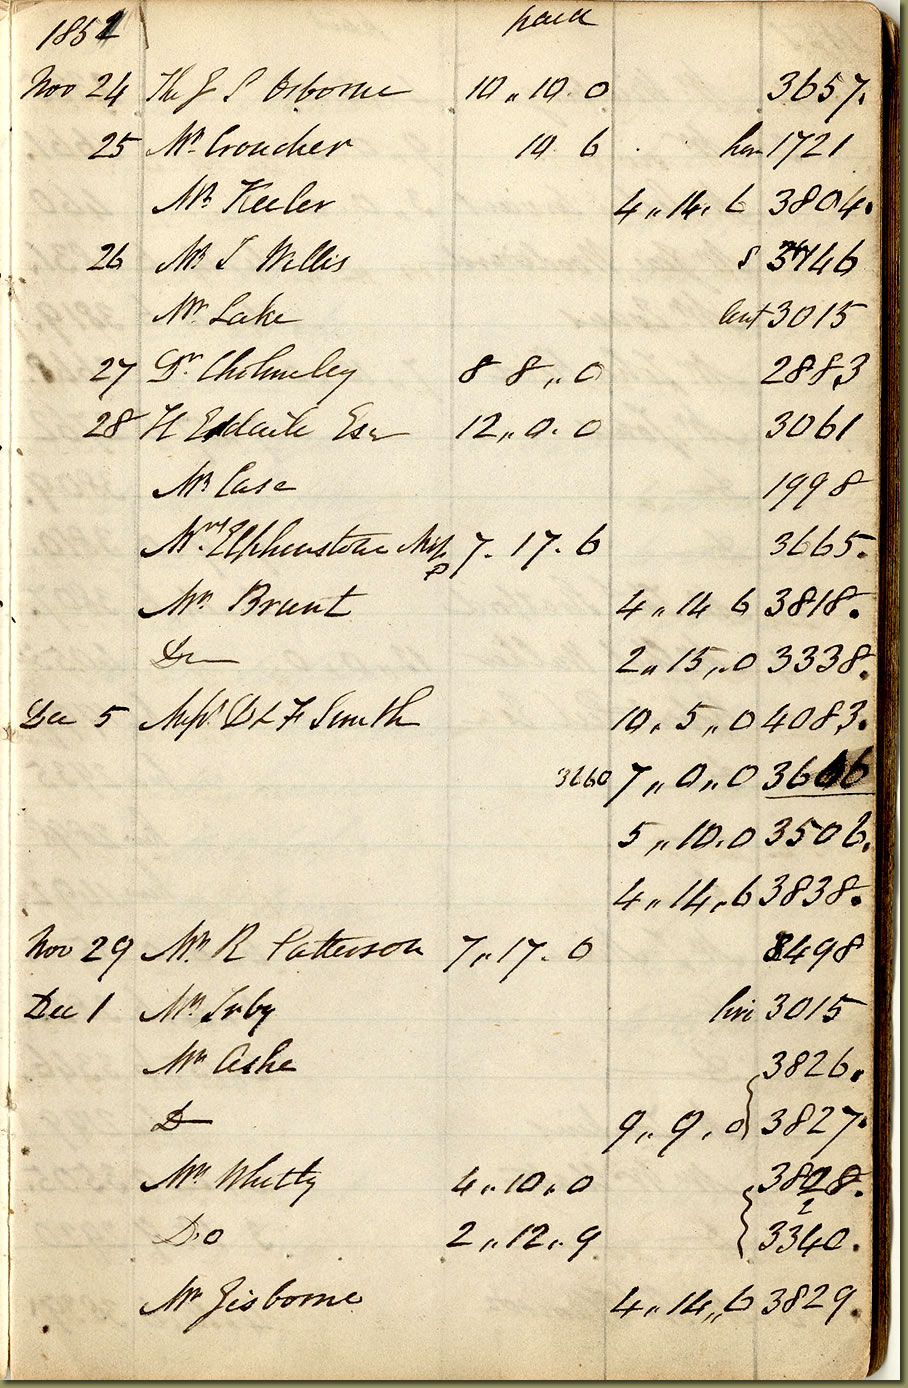 1852 paid
Nov 24 Th J S Osborne 10,,10.0 3657.
25 Mr Croucher 10 6 hire 1721
Mr Keeler 4,,14,6 3804.
26 Mr T Willis 8 3746
Mr Lake 3015
27 Dr Cholmeley 8 8,,0 2883
28 H Esdaile Esq 12,,0.0 3061
Mr Case 1998
Mrs Elphinstone 7.17.6 3665.
Mr Brunt 4,,14 6 3818.
Do 2,,15,,0 3338.
Dec 5 Messrs D & F Smith 10,5,,0 4083.
3660 7,,0,,0 3666
5,,10.0 3506.
4,,14,,6 3838.
Nov 29 Mr R Patterson 7,,17.0 3498
Dec 1 Mr Irby hire 3015
Mr Ashe 3826.
Do 9,,9,0 3827.
Mr Whitty 4,,10,,0 3828.
2
Do 2,,12,,9 3340.
Mr Gisborne 4,,14,,6 3829